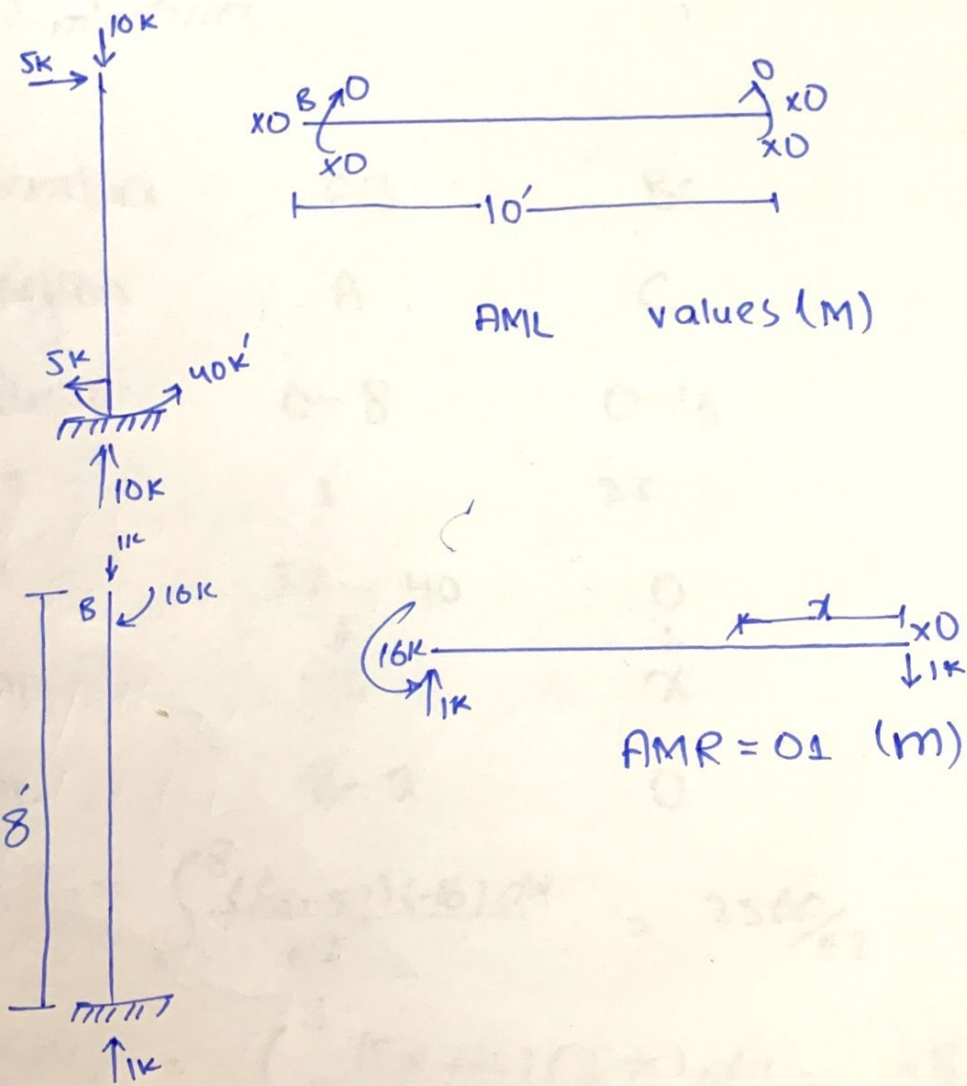 10K
5K
B O
XO XO
XO
O
XO
10'
AML values (M)
5K
40K'
10K
1K
B 16K
x
16K XO
1K 1K
AMR = 01 (m)
8'
1K